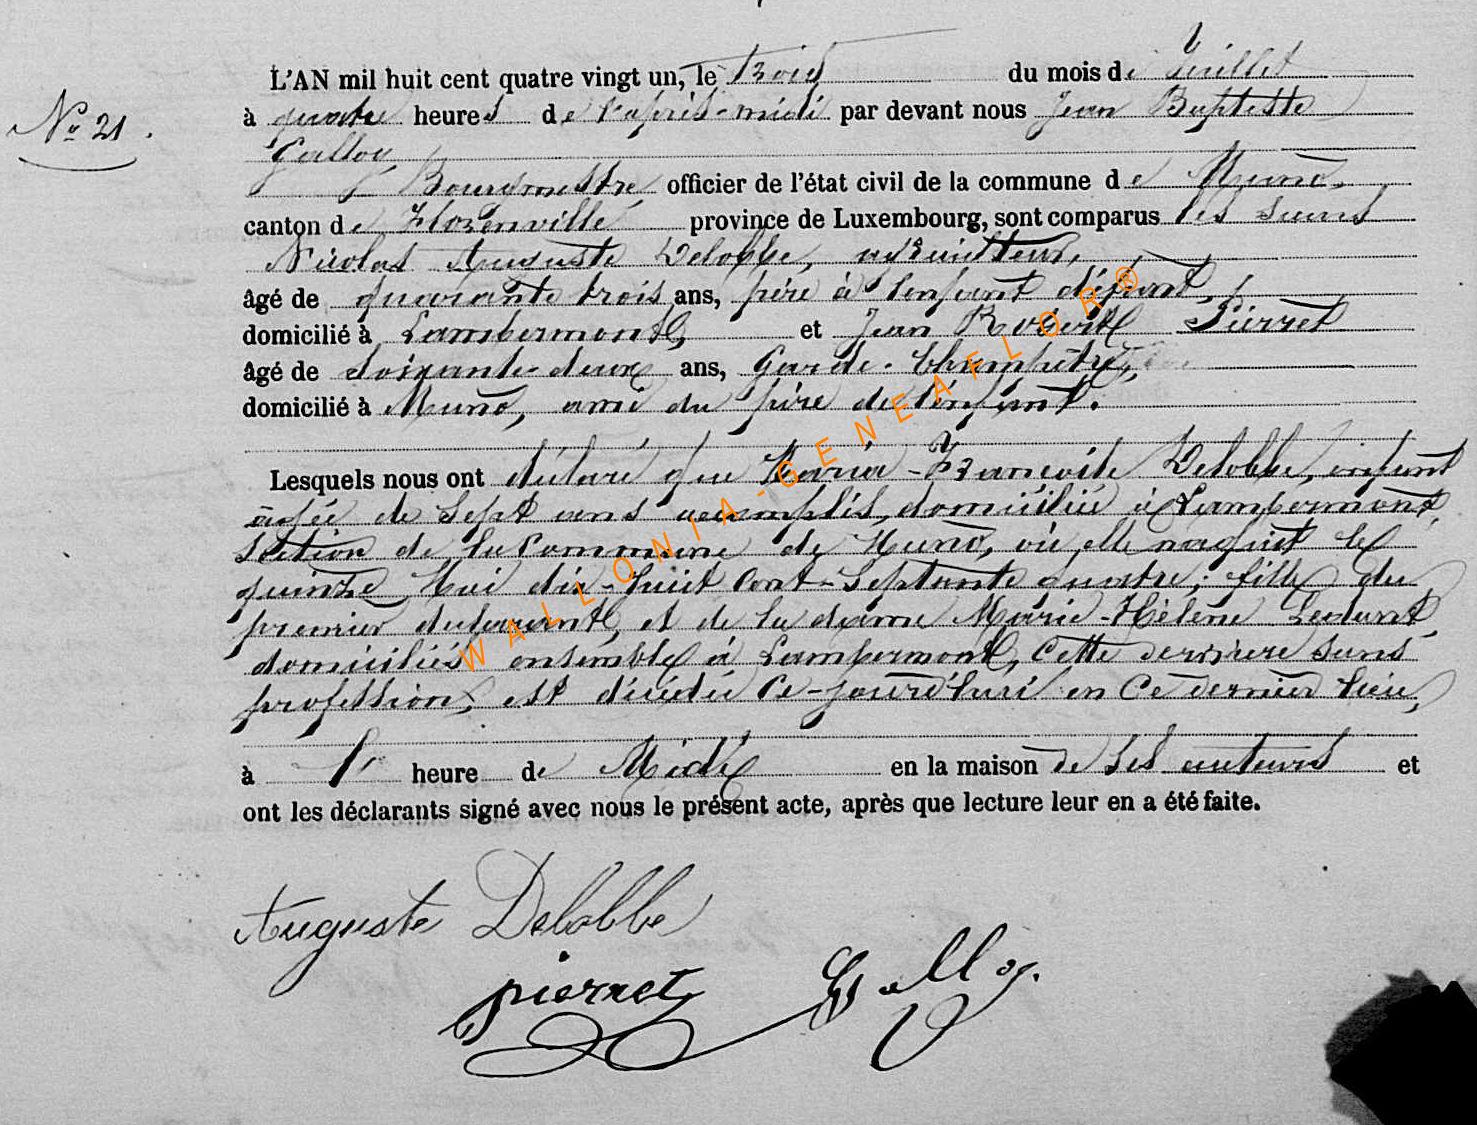 N° 21.
L'AN mil huit cent quatre vingt un, le trois du mois de Juillet
à quatre heures de l'après-midi par devant nous Jean Baptiste
Galloy
Bourgmestre officier de l'état civil de la commune de Muno,
canton de Florenville province de Luxembourg, sont comparus les sieurs
Nicolas Auguste Delobbe, cultivateur,
âgé de quarante trois ans, père à l'enfant défunt,
domicilié à Lambermont, et Jean Robert Pierret
âgé de soixante-deux ans, Garde-Champêtre,
domicilié à Muno, ami du père de l'enfant.
Lesquels nous ont déclaré que Maria-Françoise Delobbe, enfant
âgée de sept ans accomplis, domiciliée à Lambermont,
section de la commune de Muno, où elle naquit le
quinze Mai dix-huit cent-septante quatre; fille du
premier déclarant, et de la dame Marie-Hélène Ledent,
domiciliés ensemble à Lambermont, cette dernière sans
profession, est décédée ce-jourd'hui en ce dernier lieu,
à heure de Midi en la maison de ses auteurs et
ont les déclarants signé avec nous le présent acte, après que lecture leur en a été faite.
Auguste Delobbe
pierret Galloy.
WALLONIA-GENEAFLOR®